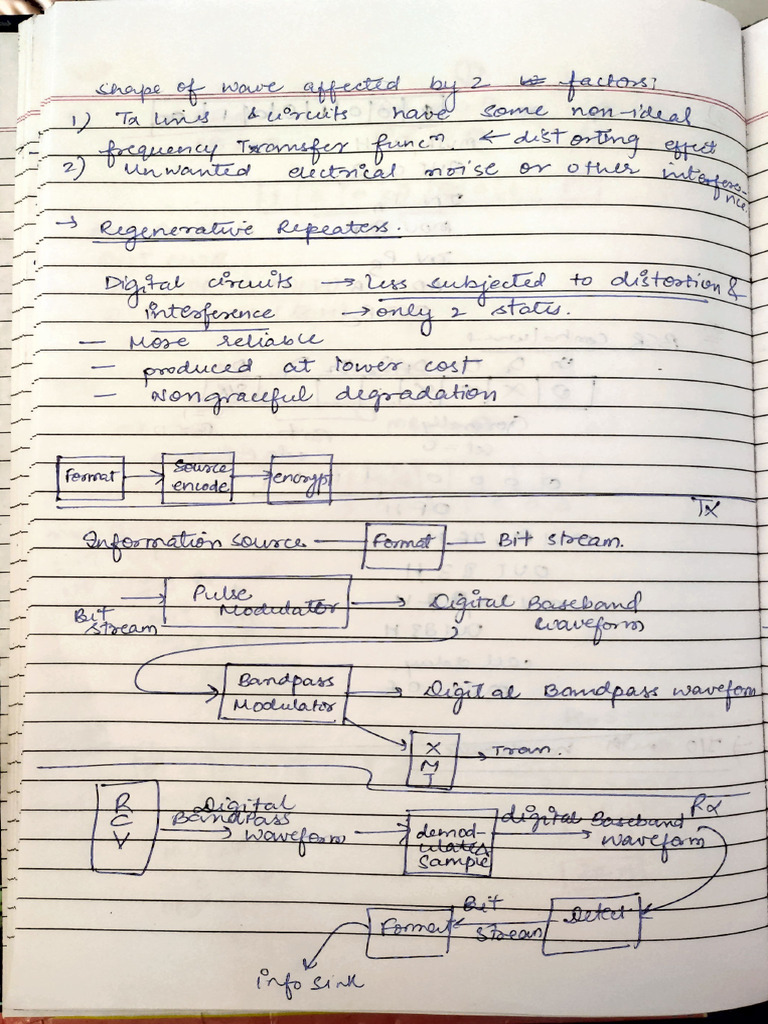 Shape of wave affected by 2 factors:
1) Tx lines & circuits have some non-ideal
frequency Transfer funcⁿ. ← distorting effect
2) Unwanted electrical noise or other interference.
→ Regenerative Repeaters.
Digital circuits → less subjected to distortion &
interference → only 2 states.
— More reliable
— produced at lower cost
— Nongraceful degradation
Format → Source encode → encrypt
Tx
Information source — Format — Bit stream.
Bit stream → Pulse Modulator → Digital Baseband waveform
Bandpass Modulator → Digital Bandpass waveform
XMT → Tran.
Rx
RCV Digital Bandpass waveform → demodulate & sample digital Baseband waveform
Format ← Bit stream Detect
info sink